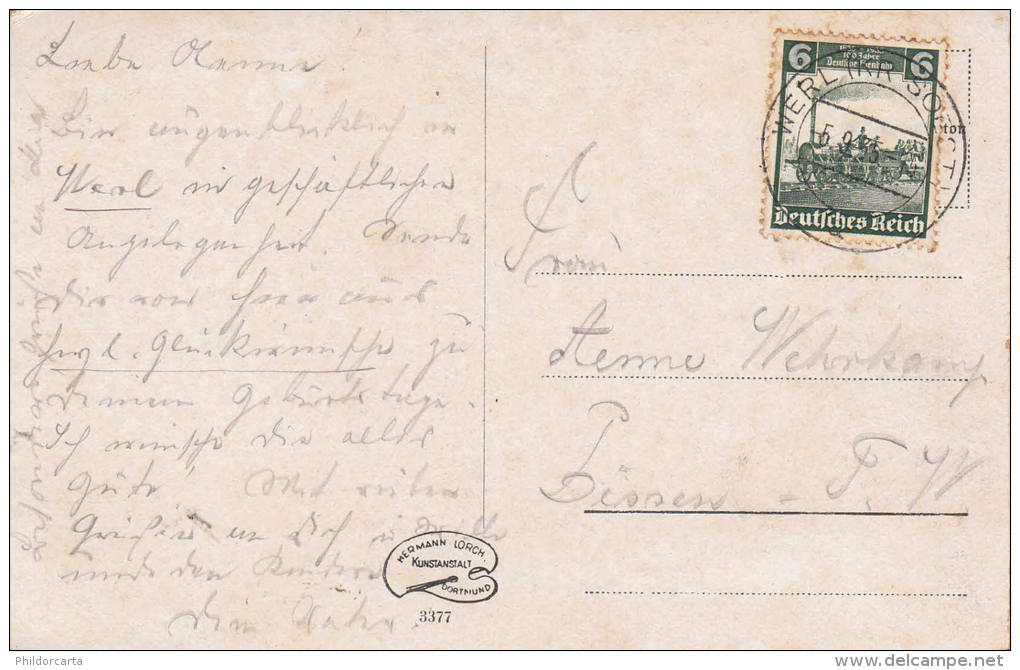 Liebe Aenne!
Bin augenblicklich in
Werl in geschäftlicher
Angelegenheit. Sende
Dir von hier aus
herzl. Glückwünsche zu
Deinem Geburtstage.
Ich wünsche Dir alles
Gute! Mit vielen
Grüßen an Dich u
und den Kindern
Dein Vater
6 6
100 Jahre
Deutsche Eisenbahn
Deutsches Reich
WERL (KR SOEST)
5.9.35
Frau
Aenne Wehrkamp
Dissen - T. W
HERMANN LORCH
KUNSTANSTALT
DORTMUND
3377
Phildorcarta
delcampe.net